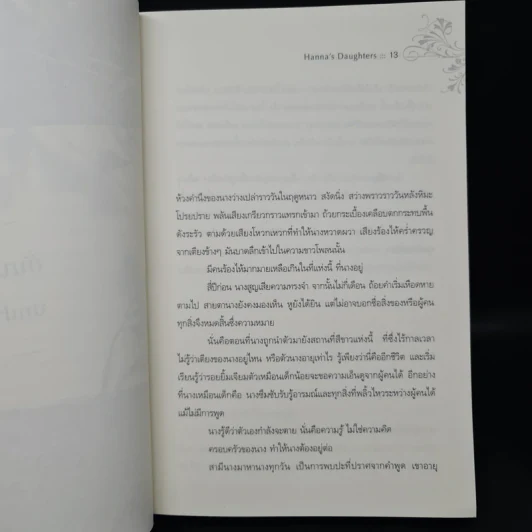 Hanna's Daughters 13
ห้วงคำนึงของนางว่างเปล่าราววันในฤดูหนาว สงัดนิ่ง สว่างพราวราววันหลังหิมะ
โปรยปราย พลันเสียงเกรียวกราวแทรกเข้ามา ถ้วยกระเบื้องเคลือบตกกระทบพื้น
ดังระรัว ตามด้วยเสียงโหวกเหวกที่ทำให้นางหวาดผวา เสียงร้องไห้คร่ำครวญ
จากเตียงข้างๆ มันบาดลึกเข้าไปในความขาวโพลนนั้น
มีคนร้องไห้มากมายเหลือเกินในที่แห่งนี้ ที่นางอยู่
สี่ปีก่อน นางสูญเสียความทรงจำ จากนั้นไม่กี่เดือน ถ้อยคำเริ่มเหือดหาย
ตามไป สายตานางยังคงมองเห็น หูยังได้ยิน แต่ไม่อาจบอกชื่อสิ่งของหรือผู้คน
ทุกสิ่งจึงหมดสิ้นซึ่งความหมาย
นั่นคือตอนที่นางถูกนำตัวมายังสถานที่สีขาวแห่งนี้ ที่ซึ่งไร้กาลเวลา
ไม่รู้ว่าเตียงของนางอยู่ไหน หรือตัวนางอายุเท่าไร รู้เพียงว่านี่คืออีกชีวิต และเริ่ม
เรียนรู้ว่ารอยยิ้มเจียมตัวเหมือนเด็กน้อยจะขอความเอ็นดูจากผู้คนได้ อีกอย่าง
ที่นางเหมือนเด็กคือ นางซึมซับรับรู้อารมณ์และทุกสิ่งที่พลิ้วไหวระหว่างผู้คนได้
แม้ไม่มีการพูด
นางรู้ดีว่าตัวเองกำลังจะตาย นั่นคือความรู้ ไม่ใช่ความคิด
ครอบครัวของนาง ทำให้นางต้องอยู่ต่อ
สามีนางมาหานางทุกวัน เป็นการพบปะที่ปราศจากคำพูด เขาอายุ